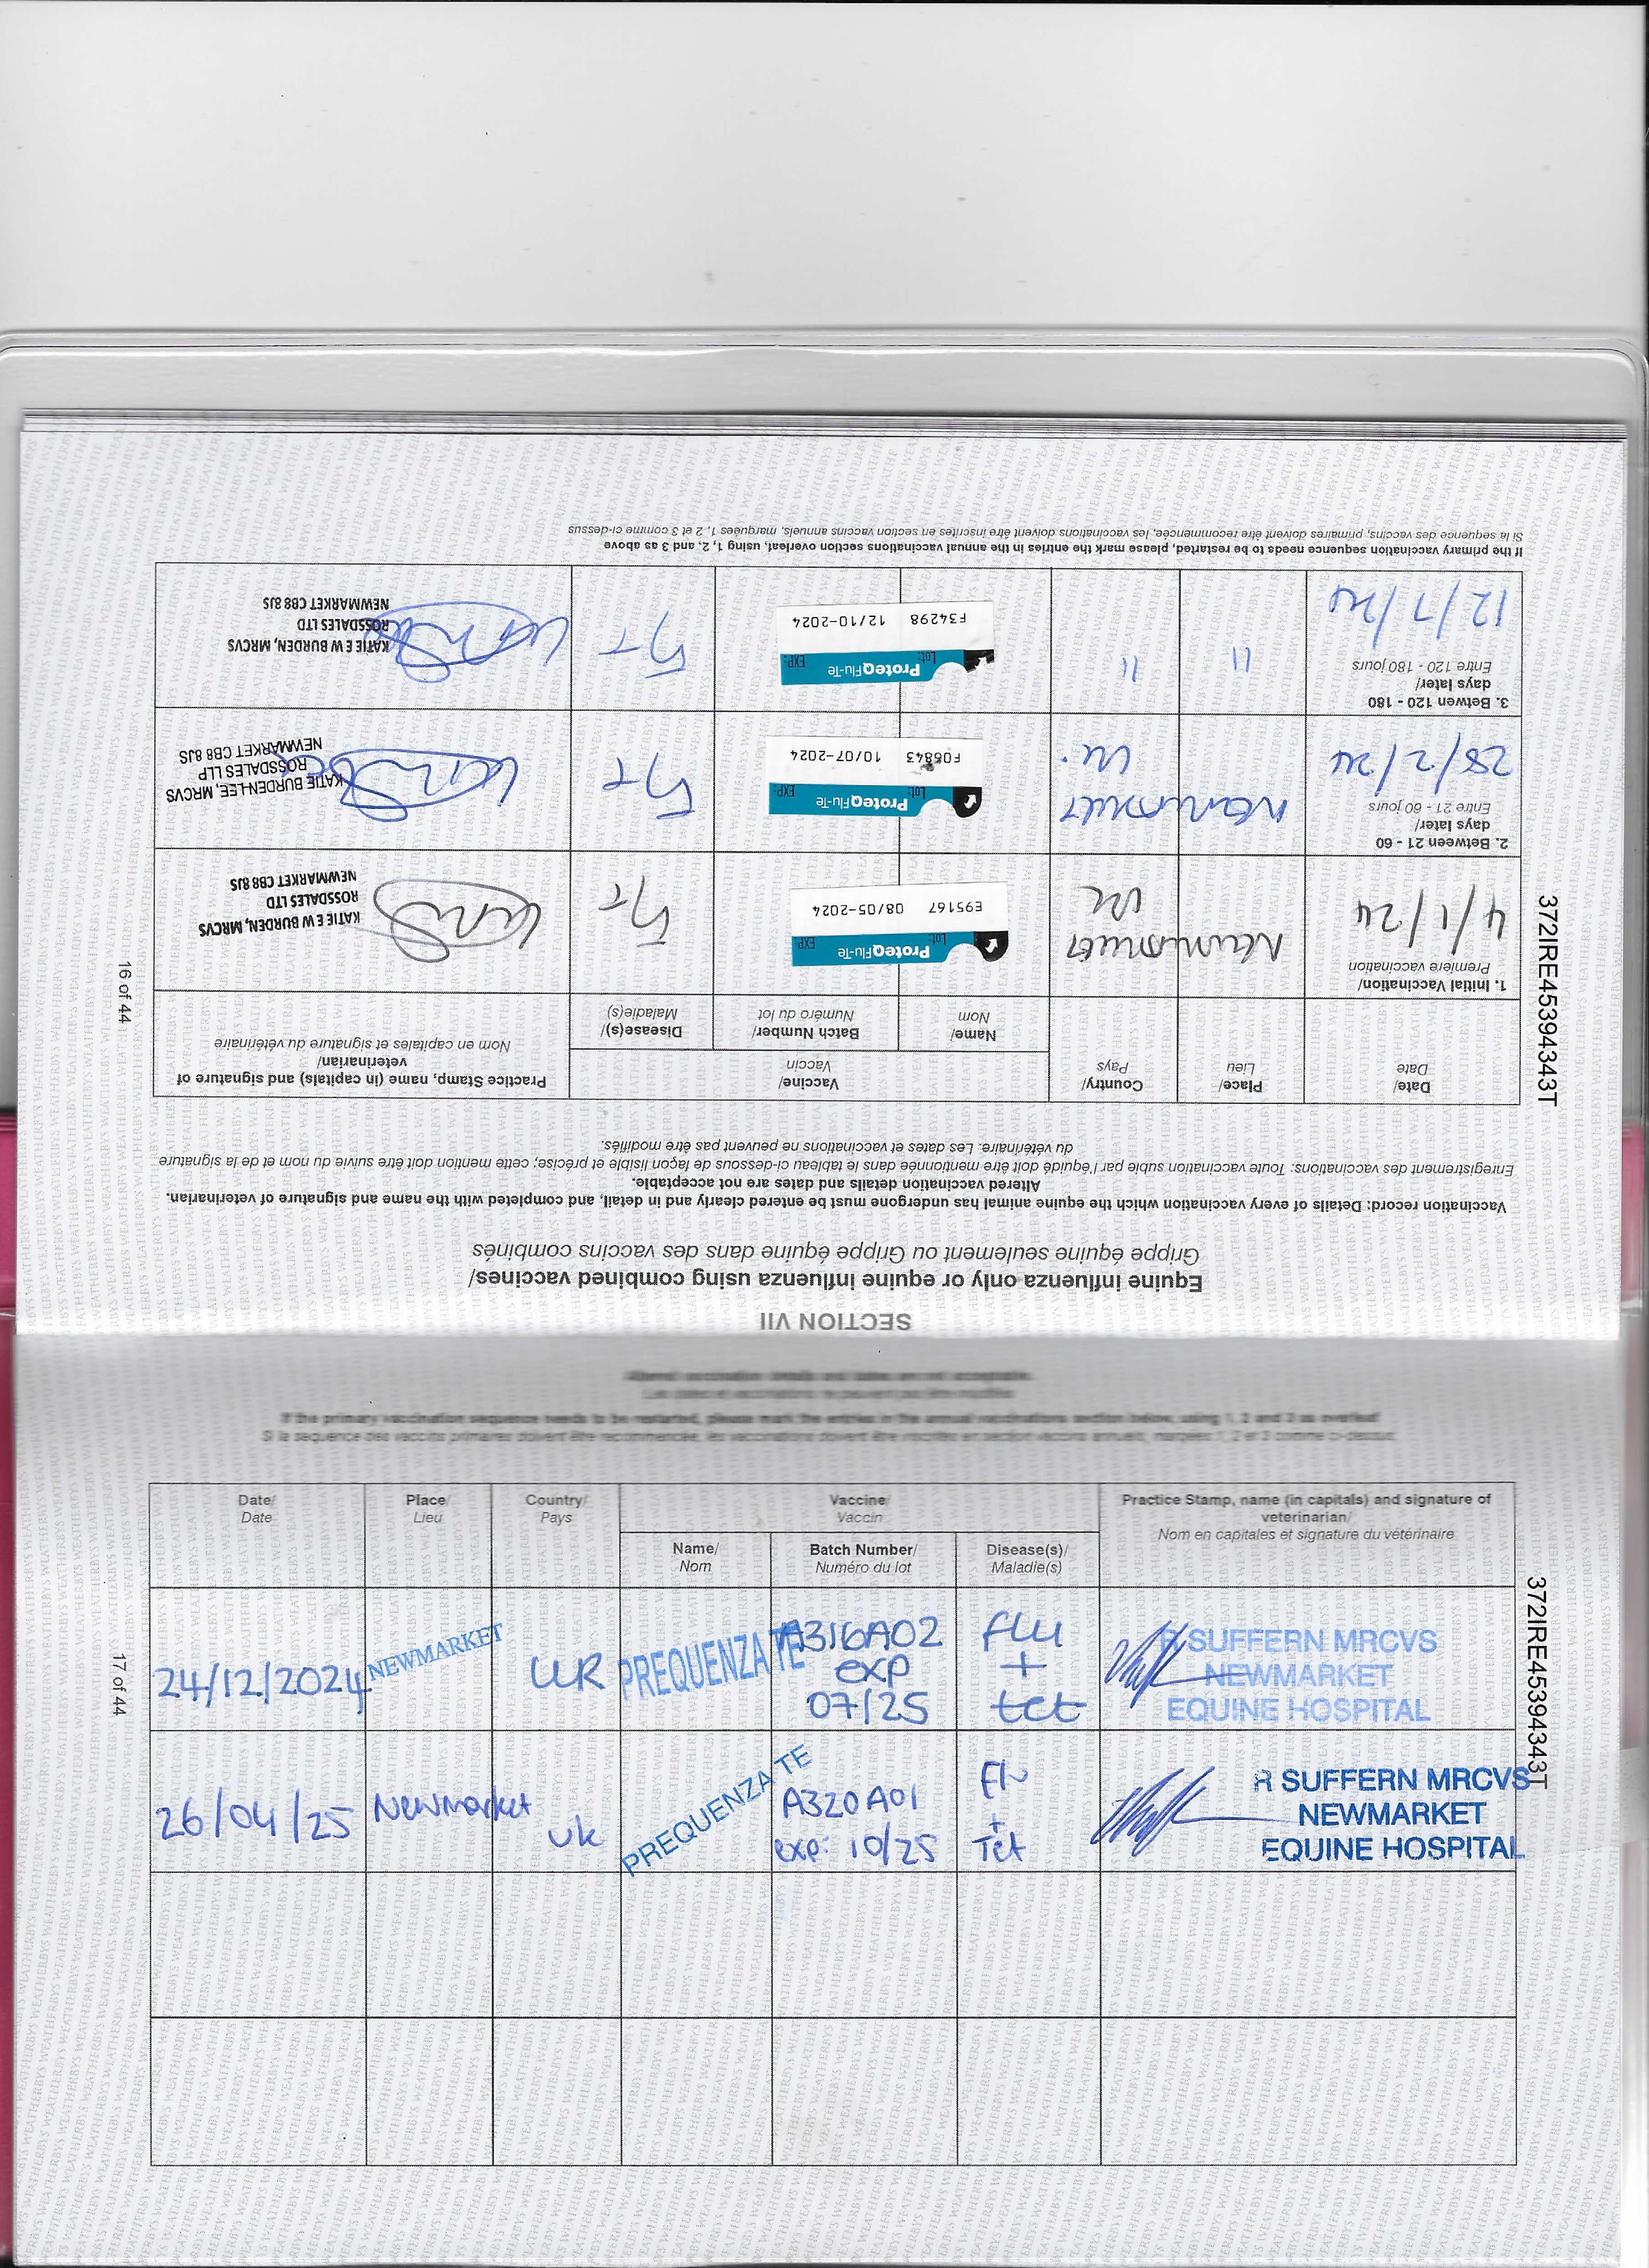 SECTION VII
Equine influenza only or equine influenza using combined vaccines/
Grippe équine seulement ou Grippe équine dans des vaccins combinés
Vaccination record: Details of every vaccination which the equine animal has undergone must be entered clearly and in detail, and completed with the name and signature of veterinarian.
Altered vaccination details and dates are not acceptable.
Enregistrement des vaccinations: Toute vaccination subie par l'équidé doit être mentionnée dans le tableau ci-dessous de façon lisible et précise; cette mention doit être suivie du nom et de la signature
du vétérinaire. Les dates et vaccinations ne peuvent pas être modifiés.
Date/
Date
Place/
Lieu
Country/
Pays
Vaccine/
Vaccin
Name/
Nom
Batch Number/
Numéro du lot
Disease(s)/
Maladie(s)
Practice Stamp, name (in capitals) and signature of
veterinarian/
Nom en capitales et signature du vétérinaire
1. Initial Vaccination/
Première vaccination
4/1/24
Newmarket
UK
ProteqFlu-Te
Lot: EXP:
E95167 08/05-2024
F/T
KATIE E W BURDEN, MRCVS
ROSSDALES LTD
NEWMARKET CB8 8JS
2. Between 21 - 60
days later/
Entre 21 - 60 jours
28/2/24
Newmarket
UK.
ProteqFlu-Te
Lot: EXP:
F06843 10/07-2024
F/T
KATIE BURDEN-LEE, MRCVS
ROSSDALES LLP
NEWMARKET CB8 8JS
3. Betwen 120 - 180
days later/
Entre 120 - 180 jours
12/7/24
"
"
ProteqFlu-Te
Lot: EXP:
F34298 12/10-2024
F/T
KATIE E W BURDEN, MRCVS
ROSSDALES LTD
NEWMARKET CB8 8JS
If the primary vaccination sequence needs to be restarted, please mark the entries in the annual vaccinations section overleaf, using 1, 2, and 3 as above
Si la sequence des vaccins, primaires doivent être recommencée, les vaccinations doivent être inscrites en section vaccins annuels, marquées 1, 2 et 3 comme ci-dessus
372IRE45394343T
16 of 44
Altered vaccination details and dates are not acceptable.
Les dates et vaccinations ne peuvent pas être modifiés
If the primary vaccination sequence needs to be restarted, please mark the entries in the annual vaccinations section below, using 1, 2 and 3 as overleaf
Si la sequence des vaccins primaires doivent être recommencée, les vaccinations doivent être inscrites en section vaccins annuels, marquées 1, 2 et 3 comme ci-dessus
Date/
Date
Place/
Lieu
Country/
Pays
Vaccine/
Vaccin
Name/
Nom
Batch Number/
Numéro du lot
Disease(s)/
Maladie(s)
Practice Stamp, name (in capitals) and signature of
veterinarian/
Nom en capitales et signature du vétérinaire
24/12/2024
NEWMARKET
UK
PREQUENZA TE
A316A02
exp
07/25
FLU
+
tet
R SUFFERN MRCVS
NEWMARKET
EQUINE HOSPITAL
26/04/25
Newmarket
UK
PREQUENZA TE
A320A01
exp: 10/25
Flu
+
Tet
R SUFFERN MRCVS
NEWMARKET
EQUINE HOSPITAL
372IRE45394343T
17 of 44